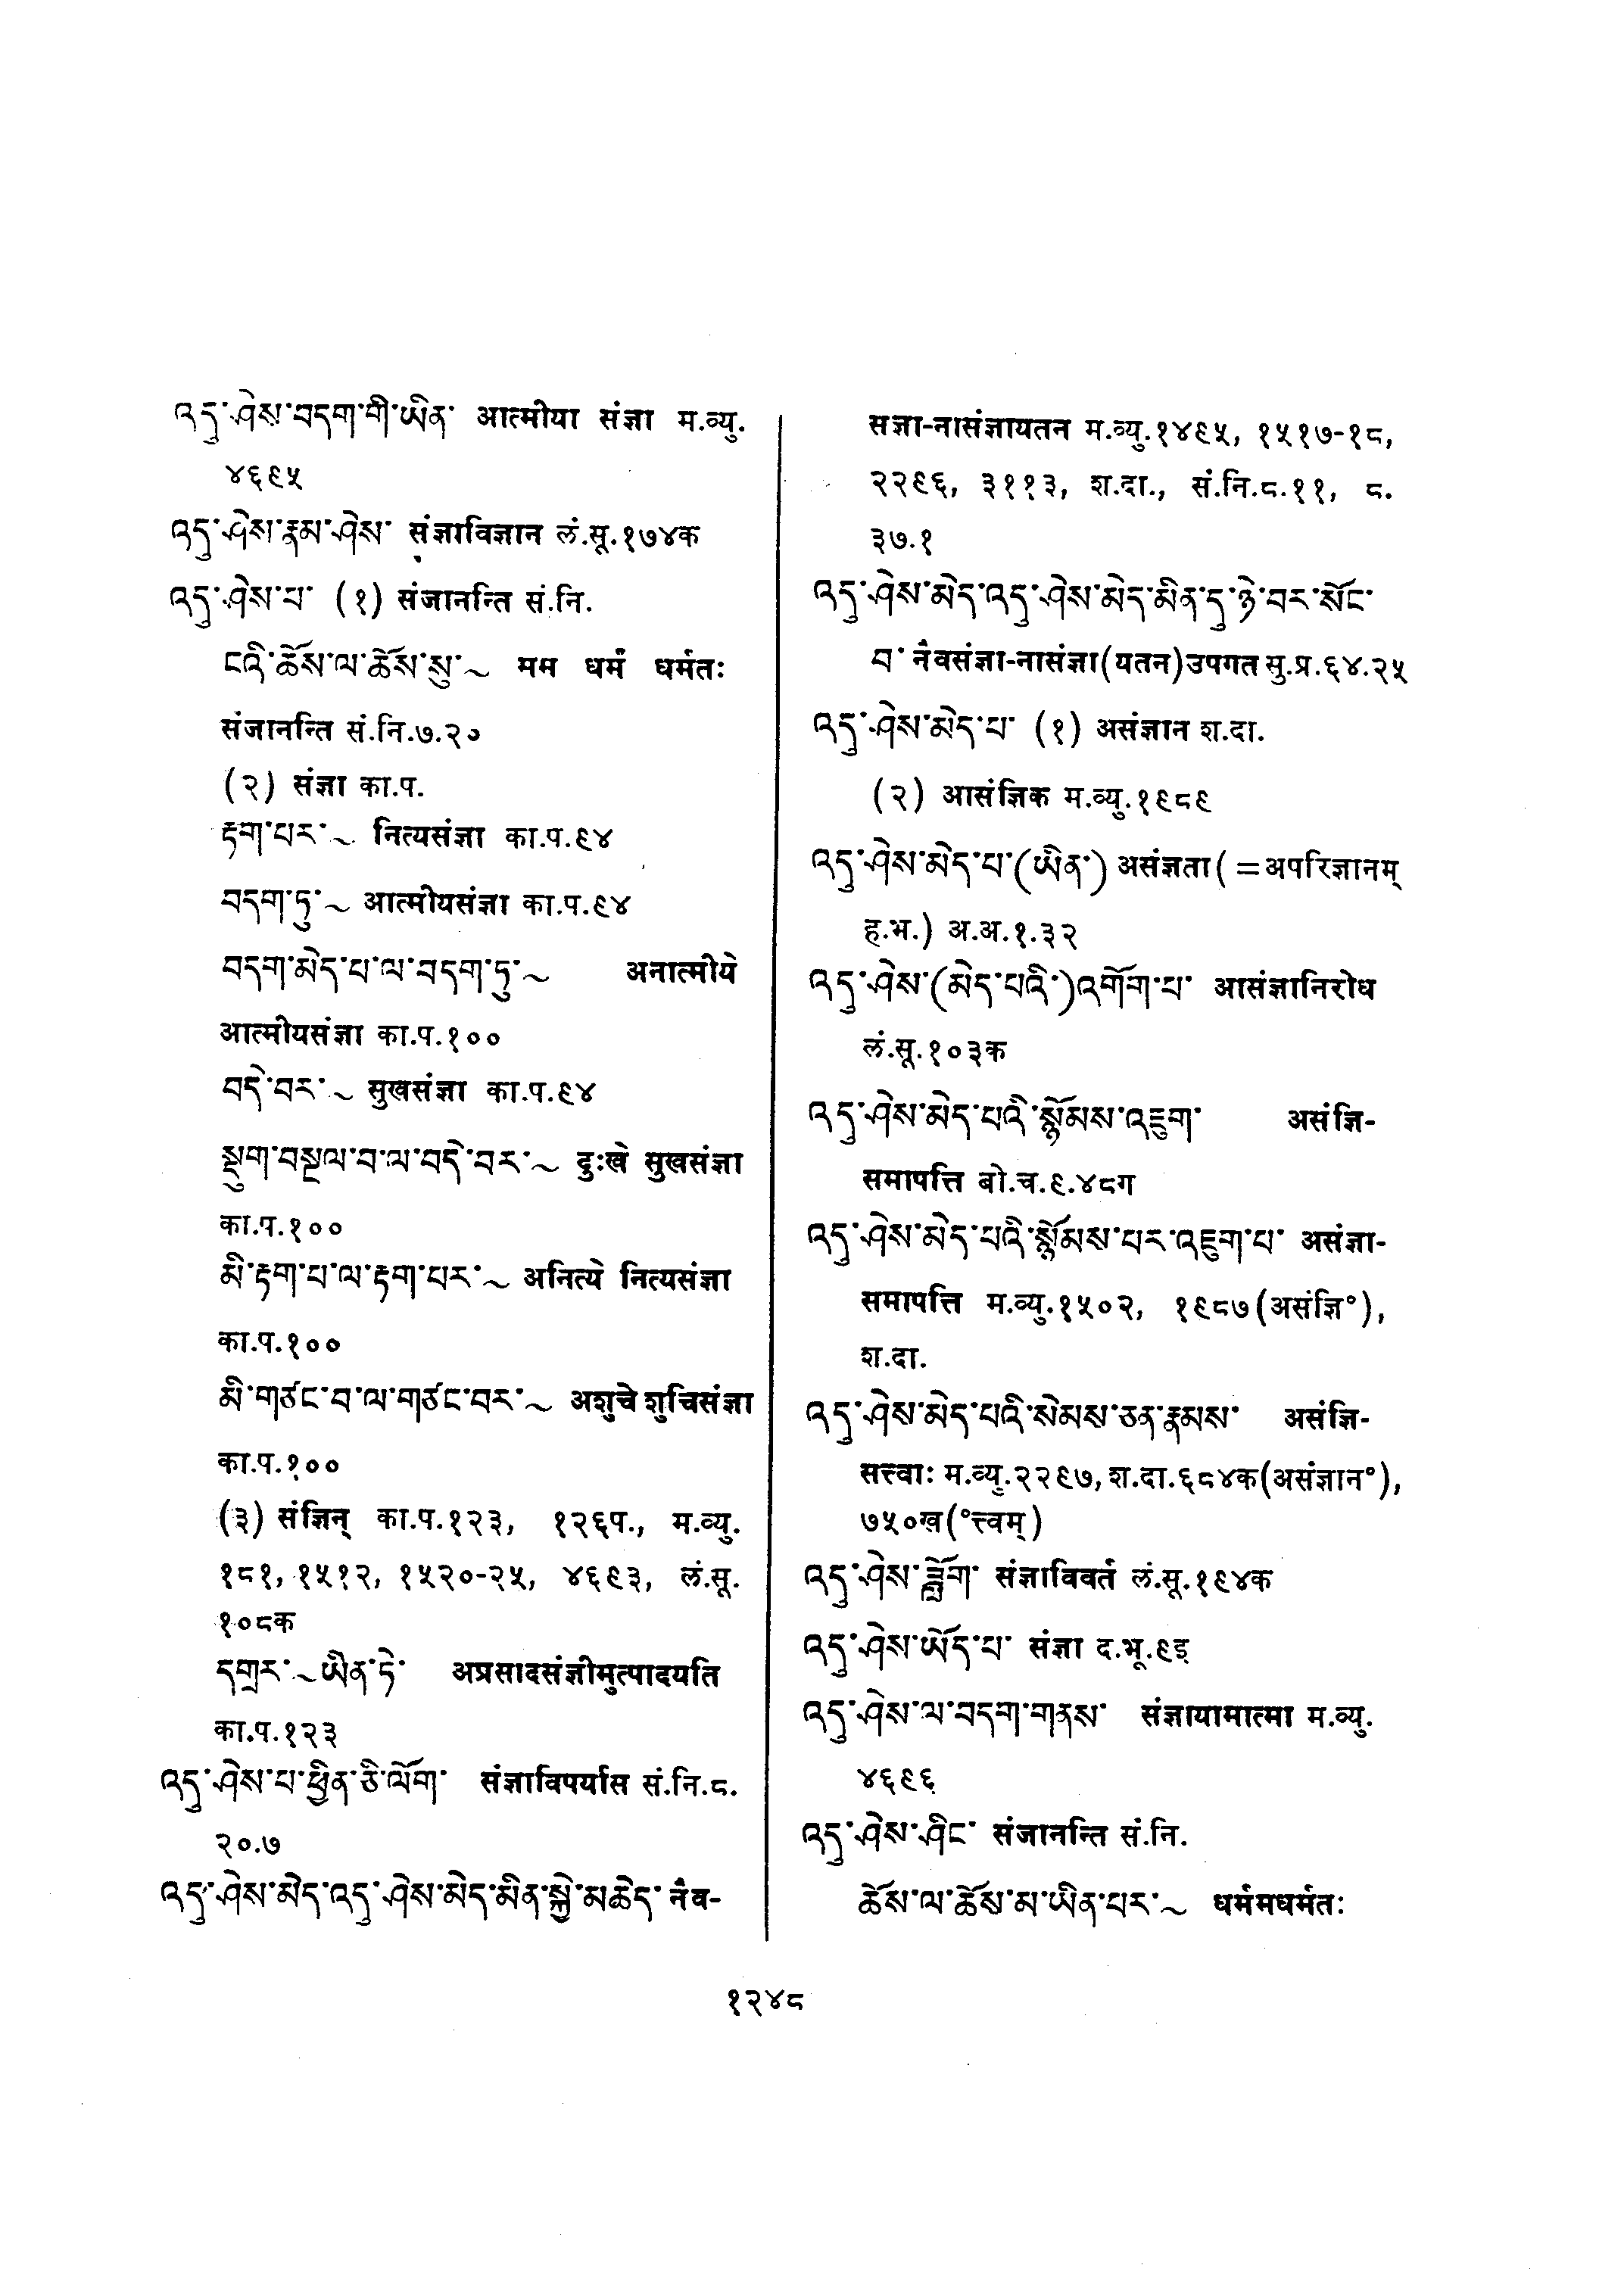 འདུ་ཤེས་བདག་གི་ཡིན་ आत्मीया संज्ञा म.व्यु.
४६९५
འདུ་ཤེས་རྣམ་ཤེས་ संज्ञाविज्ञान लं.सू.१७४क
འདུ་ཤེས་པ་ (१) संजानन्ति सं.नि.
ངའི་ཆོས་ལ་ཆོས་སུ་~ मम धर्मं धर्मतः
संजानन्ति सं.नि.७.२०
(२) संज्ञा का.प.
རྟག་པར་~ नित्यसंज्ञा का.प.९४
བདག་ཏུ་~ आत्मीयसंज्ञा का.प.९४
བདག་མེད་པ་ལ་བདག་ཏུ་~ अनात्मीये
आत्मीयसंज्ञा का.प.१००
བདེ་བར་~ सुखसंज्ञा का.प.९४
སྡུག་བསྔལ་བ་ལ་བདེ་བར་~ दुःखे सुखसंज्ञा
का.प.१००
མི་རྟག་པ་ལ་རྟག་པར་~ अनित्ये नित्यसंज्ञा
का.प.१००
མི་གཙང་བ་ལ་གཙང་བར་~ अशुचे शुचिसंज्ञा
का.प.१००
(३) संज्ञिन् का.प.१२३, १२६प., म.व्यु.
१८१, १५१२, १५२०-२५, ४६९३, लं.सू.
१०८क
དགྲར་~ཡིན་ཏེ་ अप्रसादसंज्ञीमुत्पादयति
का.प.१२३
འདུ་ཤེས་པ་ཕྱིན་ཅི་ལོག་ संज्ञाविपर्यास सं.नि.८.
२०.७
འདུ་ཤེས་མེད་འདུ་ཤེས་མེད་མིན་སྐྱེ་མཆེད་ नैव-
सज्ञा-नासंज्ञायतन म.व्यु.१४९५, १५१७-१८,
२२९६, ३११३, श.दा., सं.नि.८.११, ८.
३७.१
འདུ་ཤེས་མེད་འདུ་ཤེས་མེད་མིན་དུ་ཉེ་བར་སོང་
བ་ नैवसंज्ञा-नासंज्ञा(यतन)उपगत सु.प्र.६४.२५
འདུ་ཤེས་མེད་པ་ (१) असंज्ञान श.दा.
(२) आसंज्ञिक म.व्यु.१९८९
འདུ་ཤེས་མེད་པ་(ཡིན་) असंज्ञता (=अपरिज्ञानम्
ह.भ.) अ.अ.१.३२
འདུ་ཤེས་(མེད་པའི་)འགོག་པ་ आसंज्ञानिरोध
लं.सू.१०३क
འདུ་ཤེས་མེད་པའི་སྙོམས་འཇུག་ असंज्ञि-
समापत्ति बो.च.९.४८ग
འདུ་ཤེས་མེད་པའི་སྙོམས་པར་འཇུག་པ་ असंज्ञा-
समापत्ति म.व्यु.१५०२, १९८७(असंज्ञि°),
श.दा.
འདུ་ཤེས་མེད་པའི་སེམས་ཅན་རྣམས་ असंज्ञि-
सत्त्वाः म.व्यु.२२९७, श.दा.६८४क(असंज्ञान°),
७५०ख(°त्त्वम्)
འདུ་ཤེས་ཟློག་ संज्ञाविवर्त लं.सू.१९४क
འདུ་ཤེས་ཡོད་པ་ संज्ञा द.भू.९इ
འདུ་ཤེས་ལ་བདག་གནས་ संज्ञायामात्मा म.व्यु.
४६९६
འདུ་ཤེས་ཤིང་ संजानन्ति सं.नि.
ཆོས་ལ་ཆོས་མ་ཡིན་པར་~ धर्ममधर्मतः
१२४८